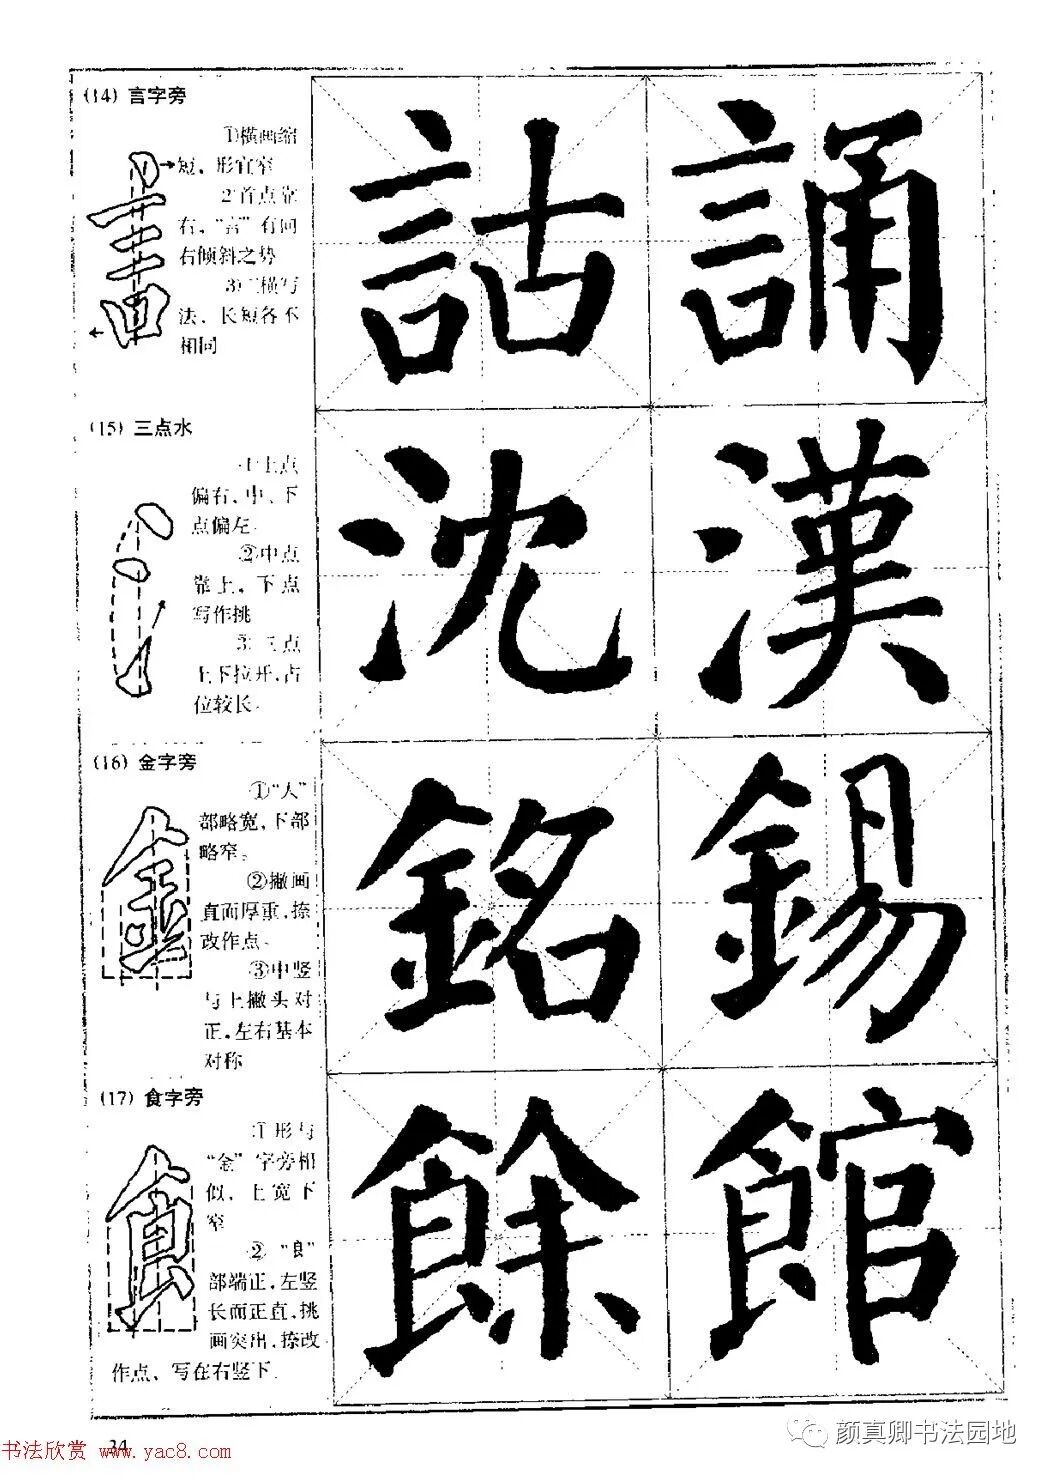 (14) 言字旁
①横画缩
短，形宜窄
②首点靠
右，“言”有向
右倾斜之势
③二横写
法、长短各不
相同
詁 誦
(15) 三点水
①上点
偏右，中、下
点偏左
②中点
靠上，下点
写作挑
③三点
上下拉开，占
位较长
沈 漢
(16) 金字旁
①“人”
部略宽，下部
略窄。
②撇画
直而厚重，捺
改作点
③中竖
与上撇头对
正，左右基本
对称
銘 錫
(17) 食字旁
①形与
“金”字旁相
似，上宽下
窄
②“良”
部端正，左竖
长而正直，挑
画突出，捺改
作点、写在右竖下
餘 館
34
书法欣赏 www.yac8.com
颜真卿书法园地